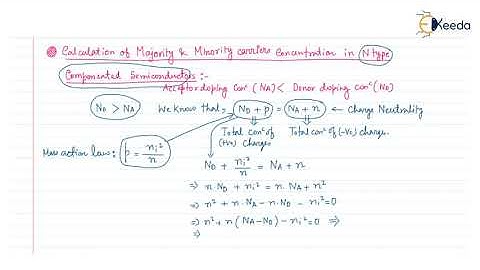 Ekeeda
Calculation of Majority & Minority carriers Concentration in N type
Compensated Semiconductors :-
Acceptor doping Conⁿ (NA) < Donor doping Conⁿ (ND)
ND > NA We know that = ND + p = NA + n ← Charge Neutrality
Total conⁿ of (+ve) charge
Total conⁿ of (-ve) charge.
Mass action law : p = ni²/n
ND + ni²/n = NA + n
⇒ n·ND + ni² = n·NA + n²
⇒ n² + n·NA - n·ND - ni² = 0
⇒ n² + n (NA - ND) - ni² = 0 ⇒
⇒